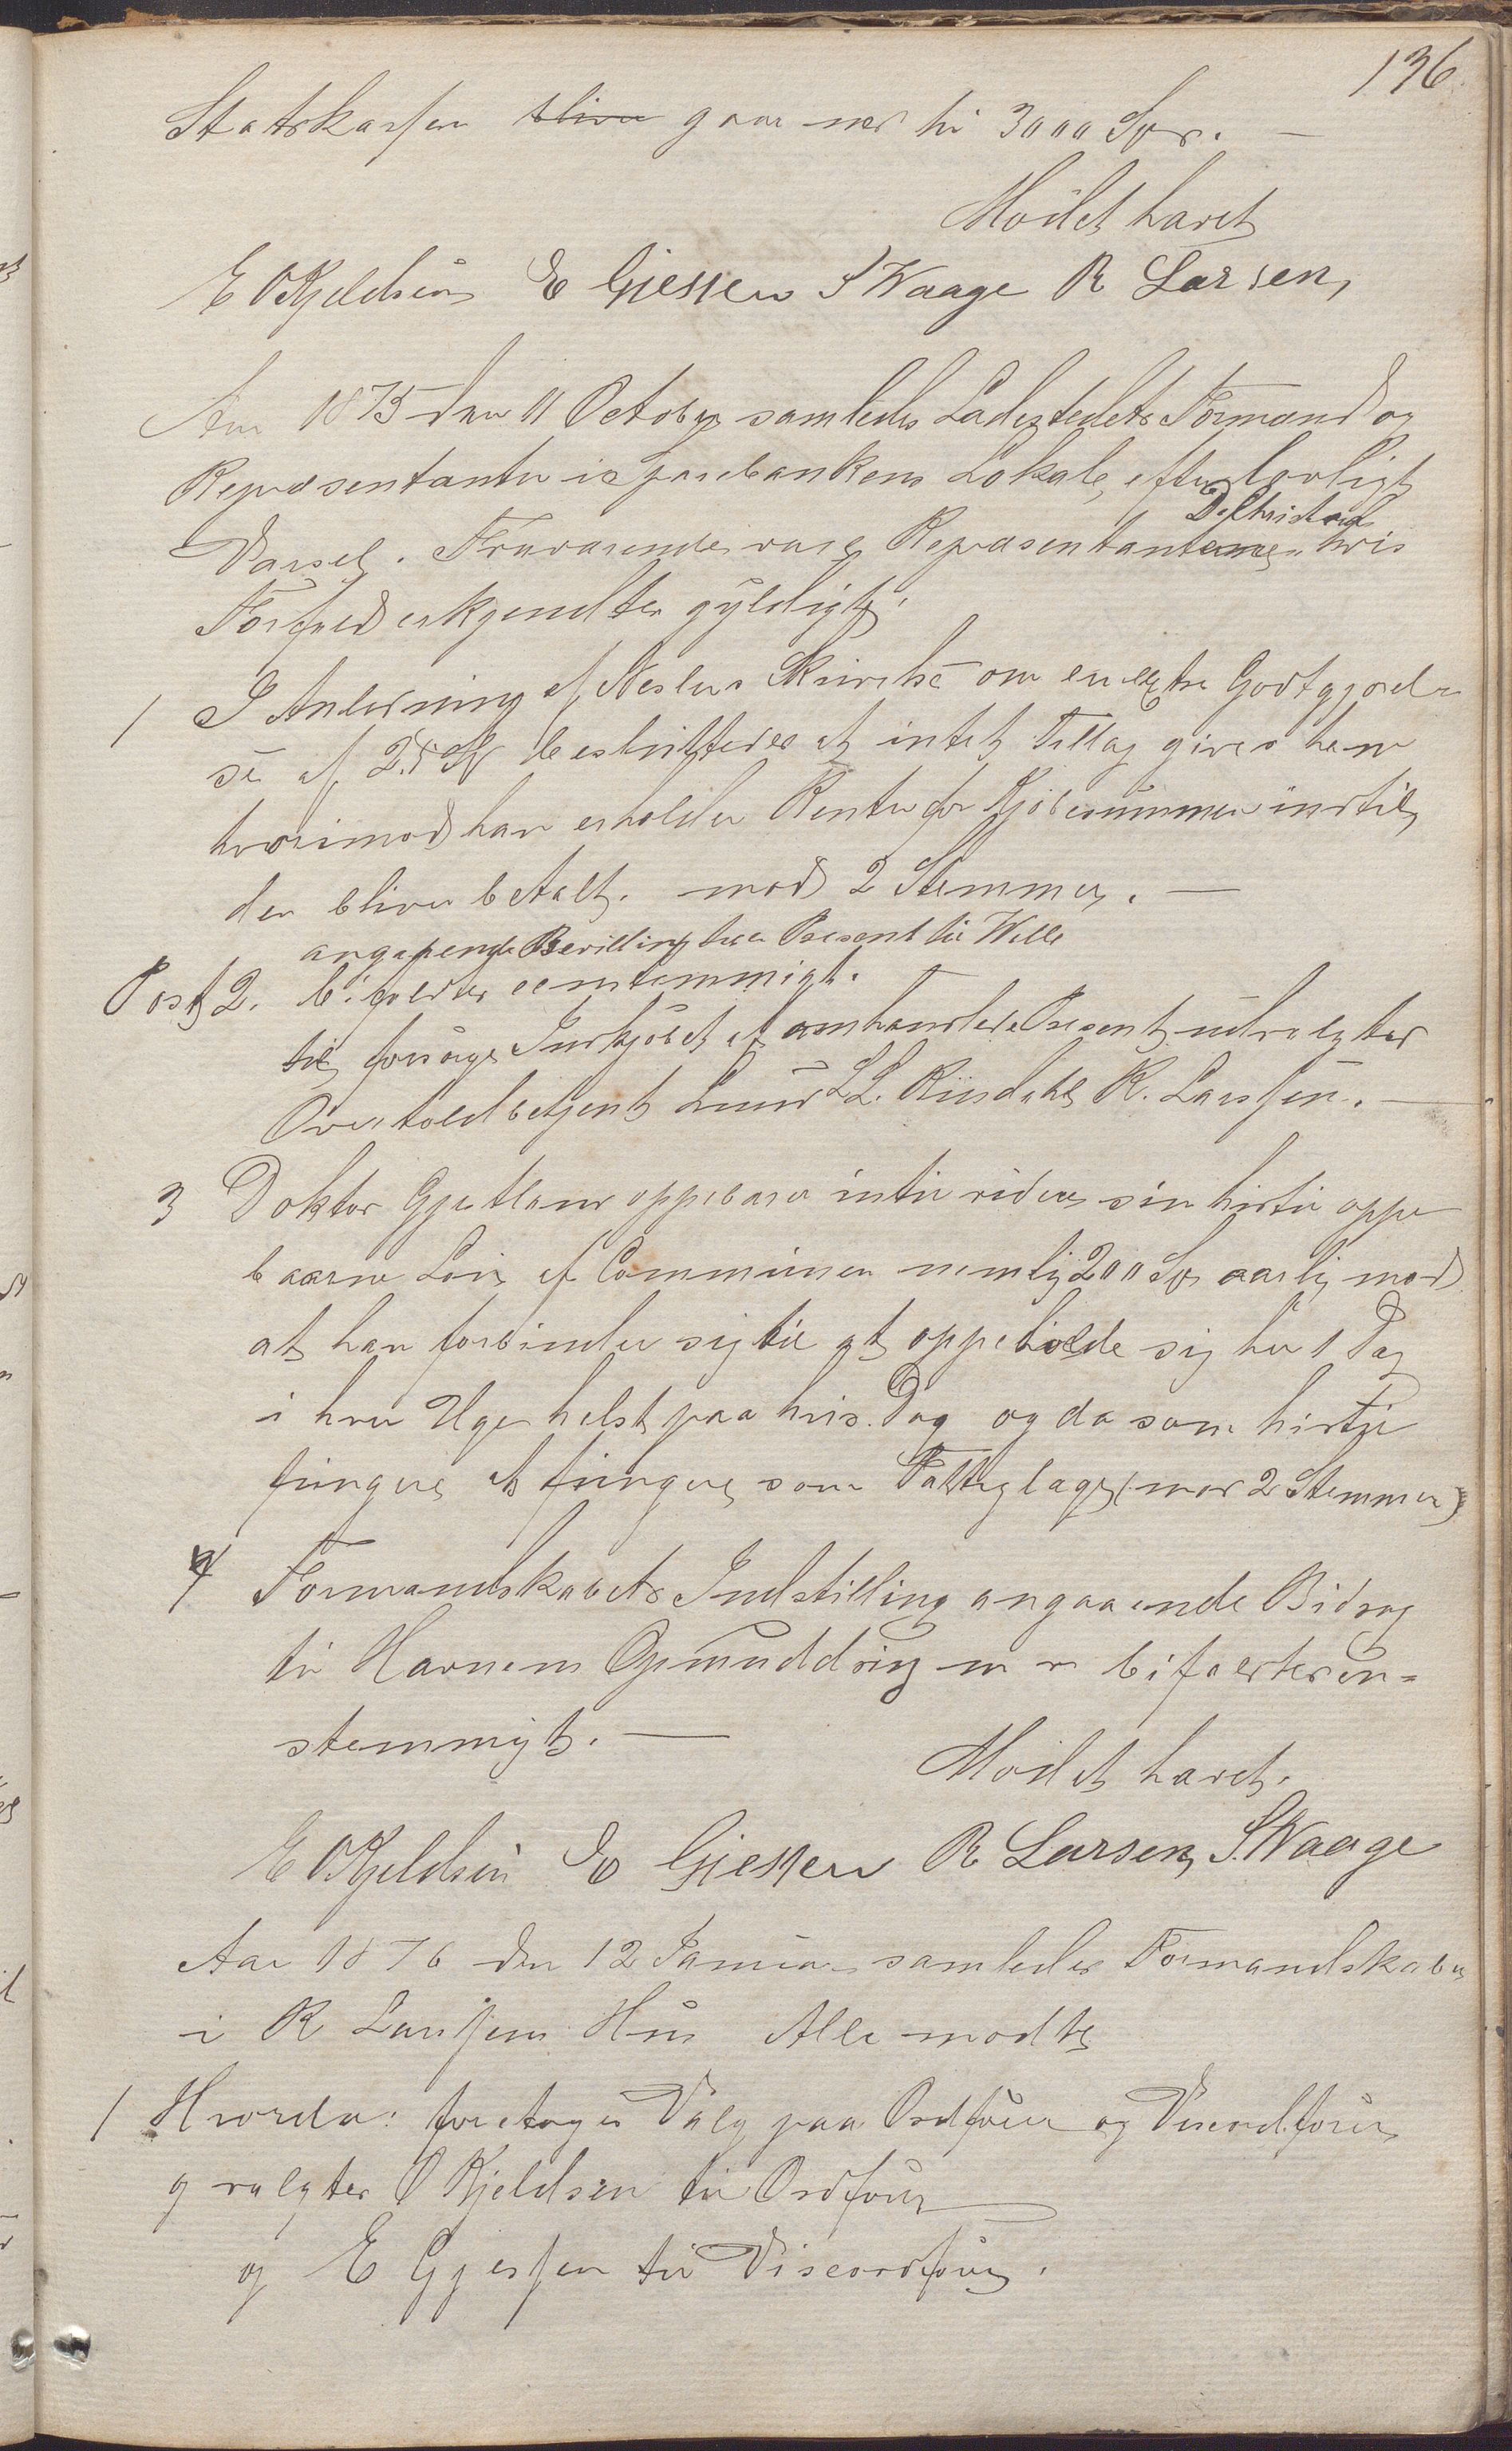 136
Statskassen bliver gaar ned til 3000 Spd. —
Mødet hævet
E OKjeldsen E Gjessen S Waage R Larsen,
Aar 1875 den 11 October samledes Ladestedets Formænd og
Repræsentanter i Sparebankens Lokale, efter lovligt
D. Christensen
Varsel. Fraværende var Repræsentanterne hvis
Forfald erkjendtes gyldigt.
1 I Anledning af Neslers Skrivelse om en extra Godtgjørel-
se af besluttedes at intet Tillæg gives ham
hvorimod han erholder Renter for Kjøbesummen indtil
den bliver betalt. mod 2 Stemmer. —
angaaende Bevilling til en Present til Wille
Post 2. bifaldtes eenstemmigt.
til foretage Indkjøbet af omhandlede Present udvalgtes
Overtoldbetjent Lund L.L. Riisdahl R. Larssen. —
3 Doktor Gjetland oppebærer indtil videre sin hidtil oppe
baarne Løn af Communen nemlig 200 Spd aarlig mod
at han forbinder sig til at oppeholde sig her 1 Dag
i hver Uge helst paa hvis. Dag og da som hidtil
fungere at fungere som Fattiglæge (mod 2 Stemmer)
4 Formandskabets Indstilling angaaende Bidrag
til Havnens Opmuddring m m bifaldtes een=
stemmigt. —
Mødet hævet.
E OKjeldsen E Gjessen R Larsen, S. Waage
Aar 1876 den 12 Januar samledes Formandskabet
i R Larssens Hus Alle mødte
1 Hvorda: foretoges Valg paa Ordfører og Viseordfører
og valgtes O Kjeldsen til Ordfører
og E Gjessen til Viseordfører.